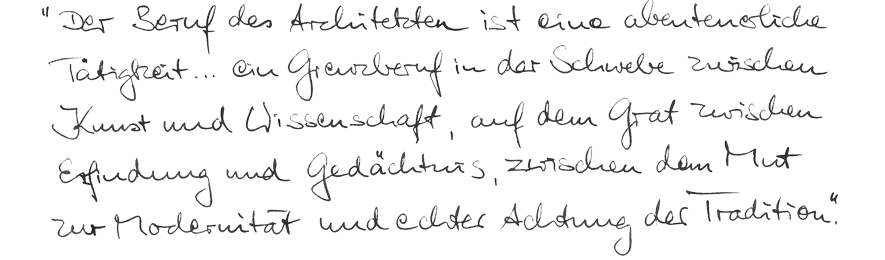 "Der Beruf des Architekten ist eine abenteuerliche
Tätigkeit... ein Grenzberuf in der Schwebe zwischen
Kunst und Wissenschaft, auf dem Grat zwischen
Erfindung und Gedächtnis, zwischen dem Mut
zur Modernität und echter Achtung der Tradition".